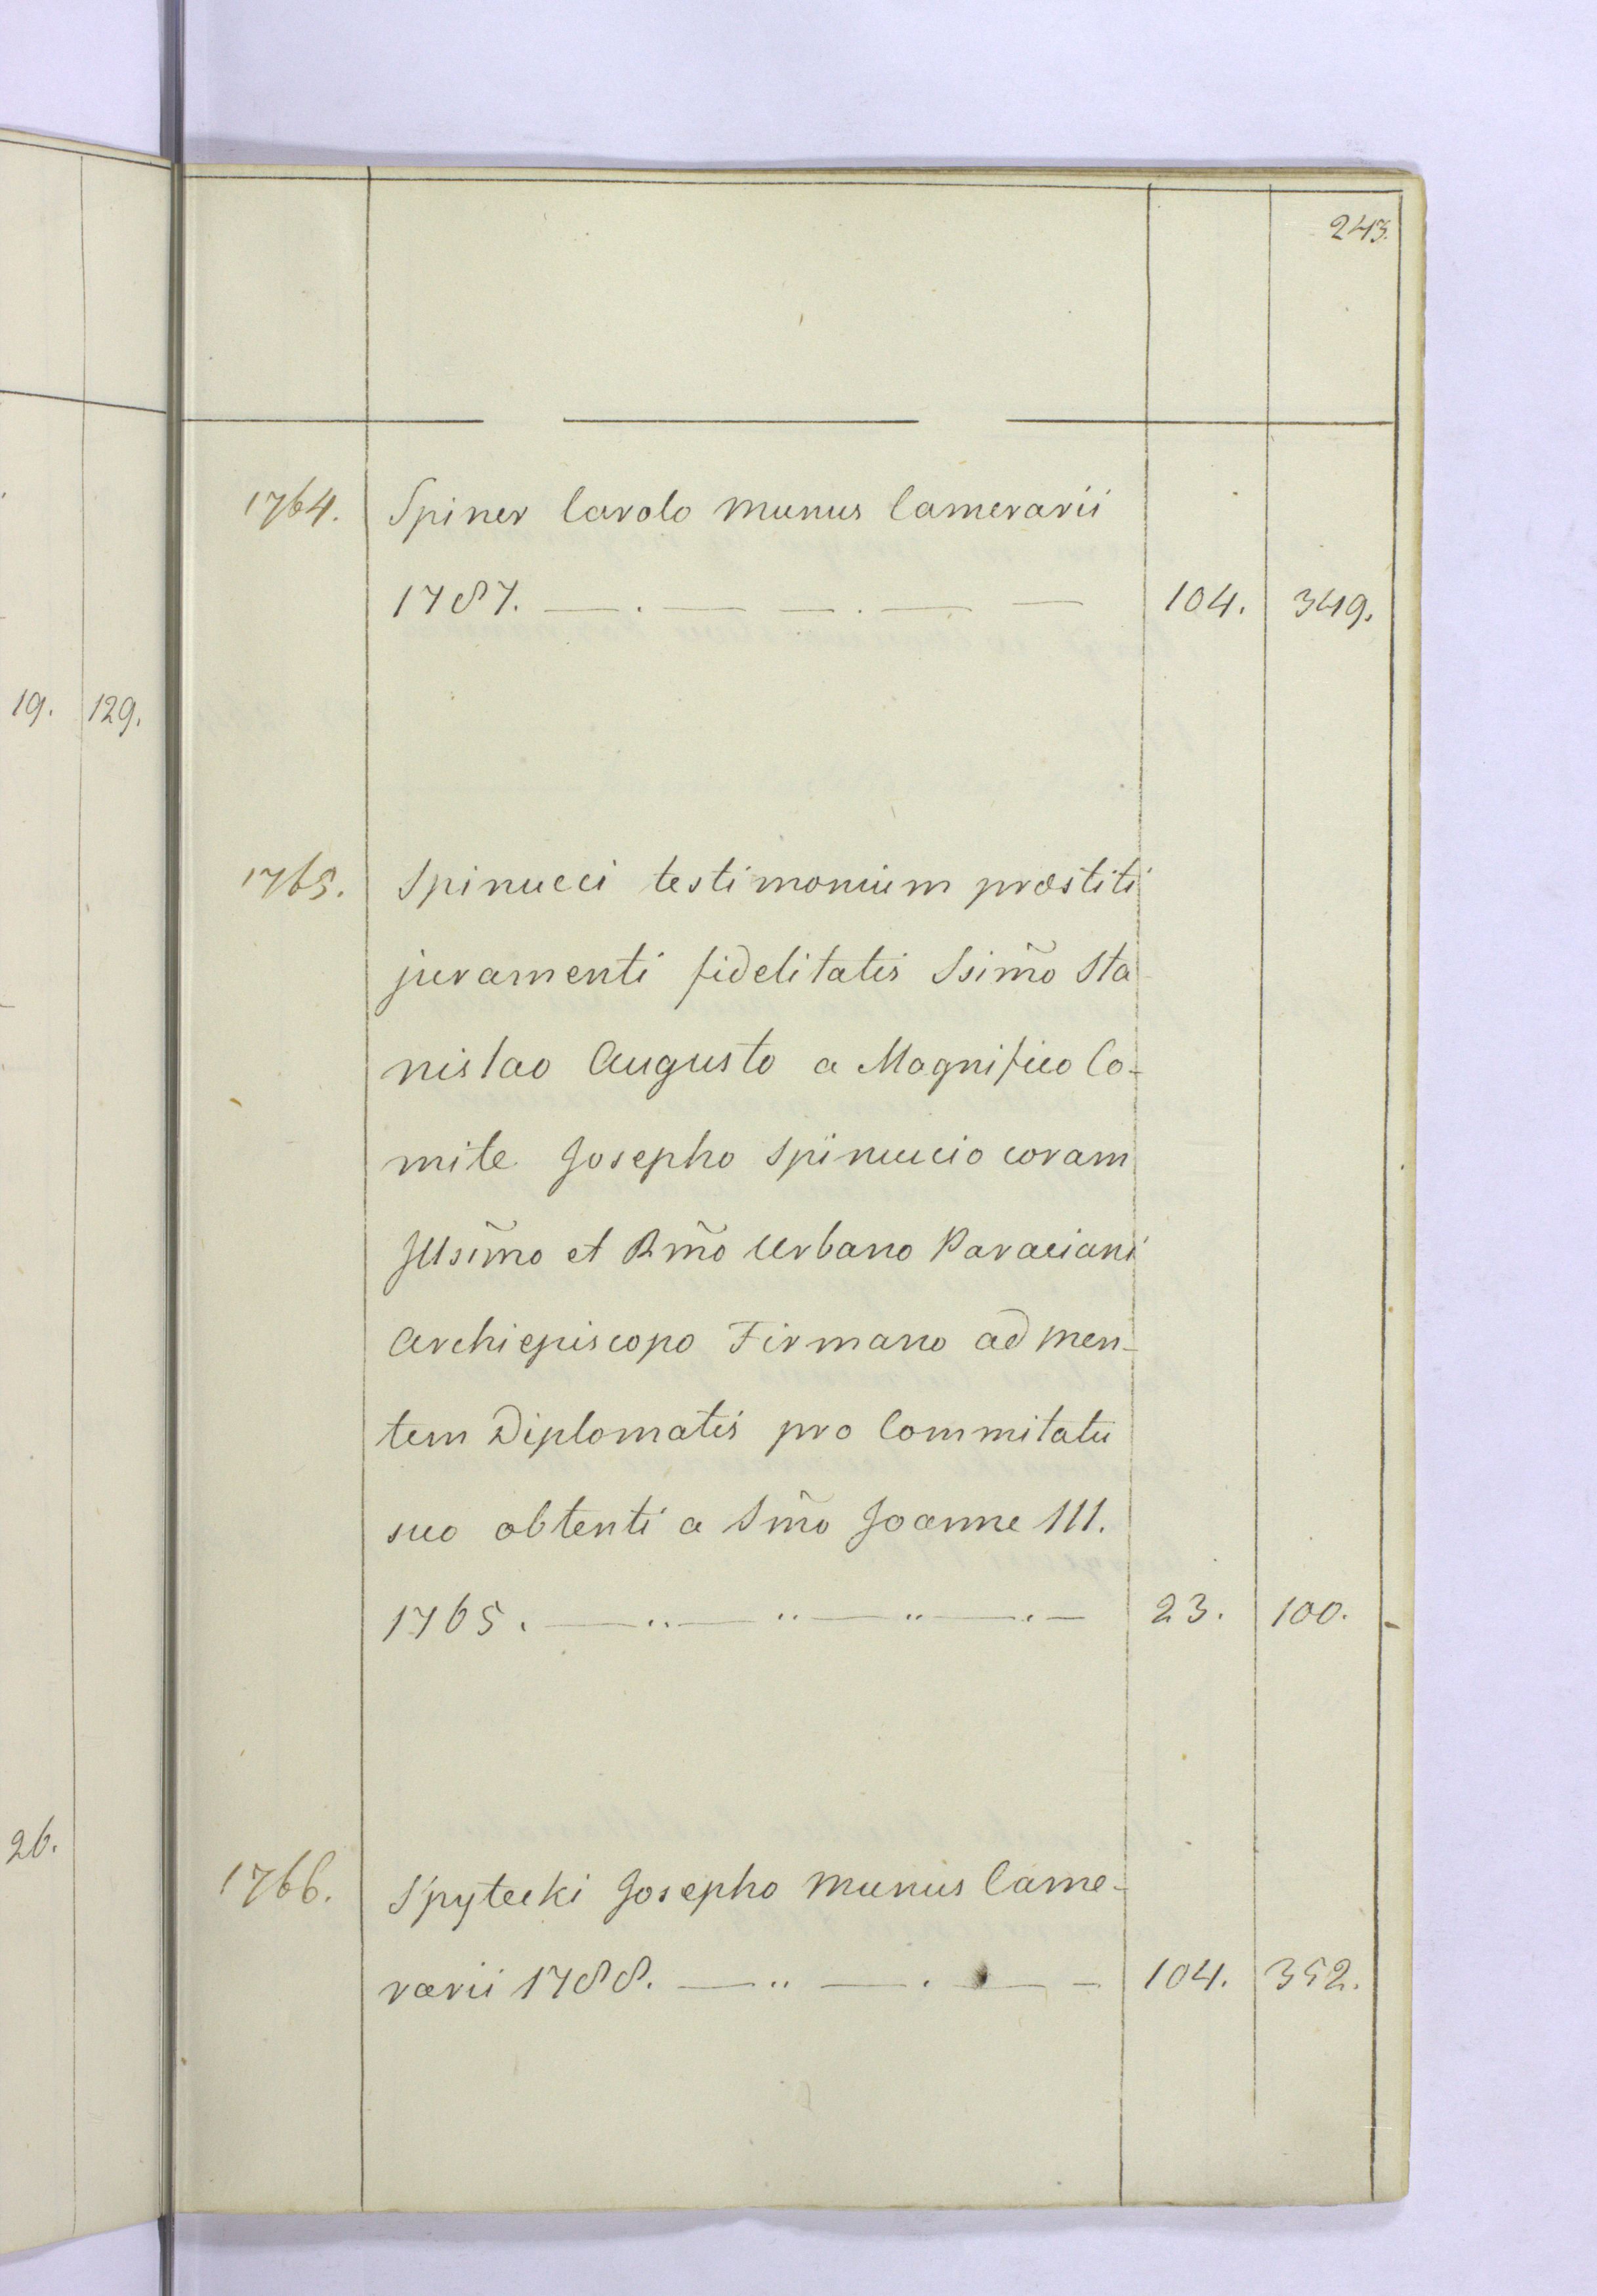 243.
1764. Spiner Carolo munus Camerarii
1787. 104. 349.
19. 129.
1765. Spinucci testimonium præstiti
juramenti fidelitatis Ssimo Sta
nislao Augusto a Magnifico Co-
mite Josepho Spinuccio coram
Illsimo et Rmo Urbano Paraciani
Archiepiscopo Firmano ad men-
tem Diplomatis pro Commitatu
suo obtenti a Smo Joanne III.
1765. 23. 100.
26.
1766. Spytecki Josepho munus Came-
rarii 1788. 104. 352.